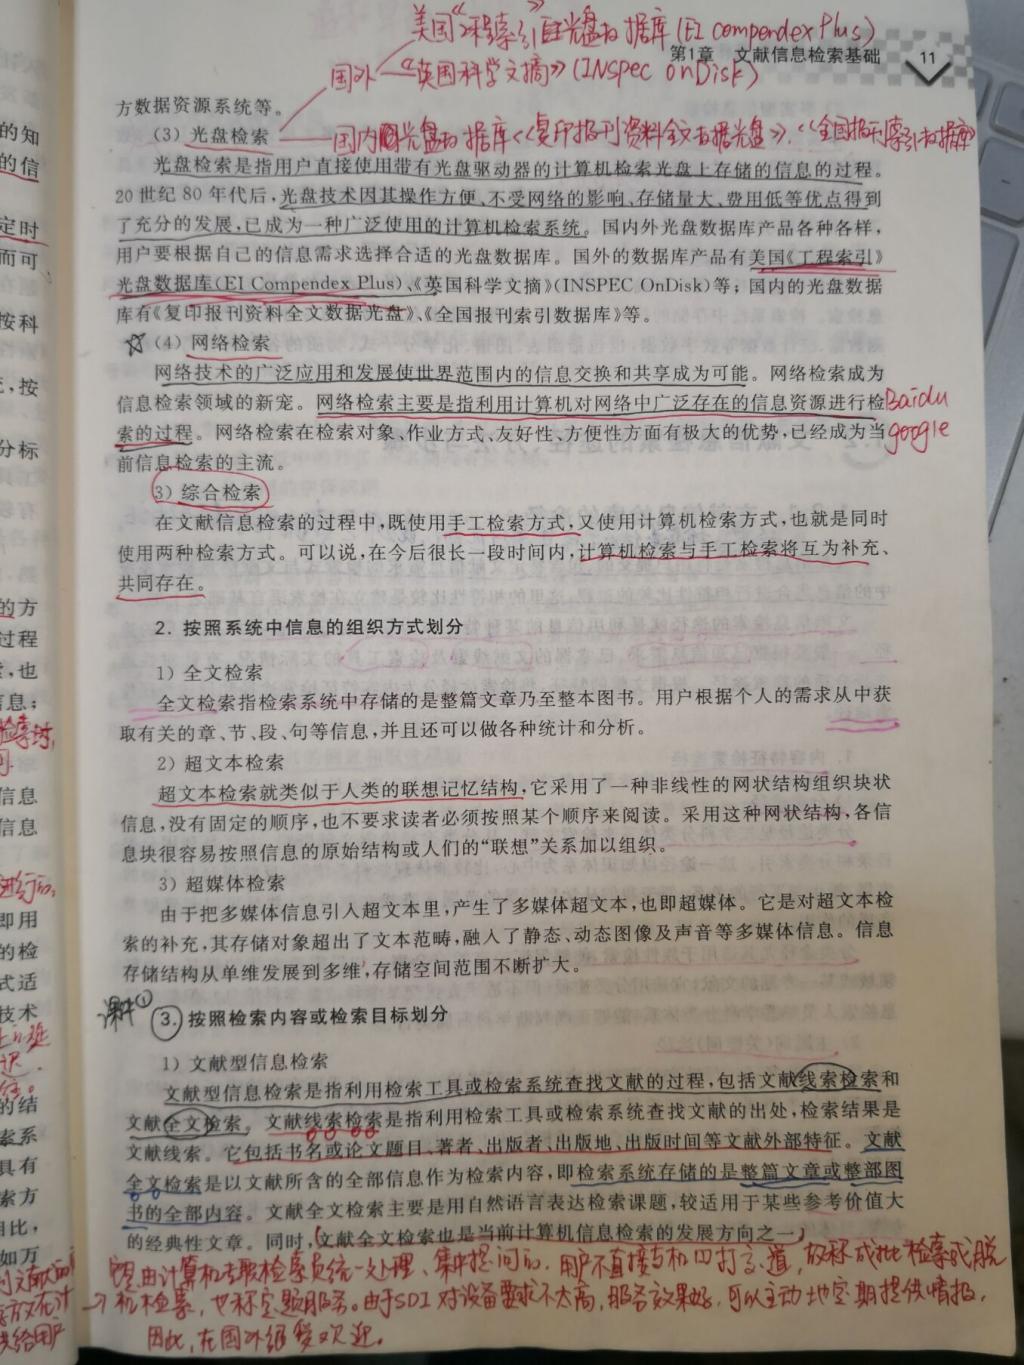 美国《工程索引》光盘数据库(EI compendex Plus)
第1章 文献信息检索基础 11
国外—《英国科学文摘》(INSpec OnDisk)
方数据资源系统等。
(3) 光盘检索
国内光盘数据库《复印报刊资料全文数据光盘》、《全国报刊索引数据库》
光盘检索是指用户直接使用带有光盘驱动器的计算机检索光盘上存储的信息的过程。
20世纪80年代后,光盘技术因其操作方便、不受网络的影响、存储量大、费用低等优点得到
了充分的发展,已成为一种广泛使用的计算机检索系统。国内外光盘数据库产品各种各样,
用户要根据自己的信息需求选择合适的光盘数据库。国外的数据库产品有美国《工程索引》
光盘数据库(EI Compendex Plus)、《英国科学文摘》(INSPEC OnDisk)等;国内的光盘数据
库有《复印报刊资料全文数据光盘》、《全国报刊索引数据库》等。
(4) 网络检索
网络技术的广泛应用和发展使世界范围内的信息交换和共享成为可能。网络检索成为
信息检索领域的新宠。网络检索主要是指利用计算机对网络中广泛存在的信息资源进行检
Baidu
索的过程。网络检索在检索对象、作业方式、友好性、方便性方面有极大的优势,已经成为当
google
前信息检索的主流。
3) 综合检索
在文献信息检索的过程中,既使用手工检索方式,又使用计算机检索方式,也就是同时
使用两种检索方式。可以说,在今后很长一段时间内,计算机检索与手工检索将互为补充、
共同存在。
2. 按照系统中信息的组织方式划分
1) 全文检索
全文检索指检索系统中存储的是整篇文章乃至整本图书。用户根据个人的需求从中获
取有关的章、节、段、句等信息,并且还可以做各种统计和分析。
2) 超文本检索
超文本检索就类似于人类的联想记忆结构,它采用了一种非线性的网状结构组织块状
信息,没有固定的顺序,也不要求读者必须按照某个顺序来阅读。采用这种网状结构,各信
息块很容易按照信息的原始结构或人们的“联想”关系加以组织。
3) 超媒体检索
由于把多媒体信息引入超文本里,产生了多媒体超文本,也即超媒体。它是对超文本检
索的补充,其存储对象超出了文本范畴,融入了静态、动态图像及声音等多媒体信息。信息
存储结构从单维发展到多维,存储空间范围不断扩大。
课件①
3. 按照检索内容或检索目标划分
1) 文献型信息检索
文献型信息检索是指利用检索工具或检索系统查找文献的过程,包括文献线索检索和
文献全文检索。文献线索检索是指利用检索工具或检索系统查找文献的出处,检索结果是
文献线索。它包括书名或论文题目、著者、出版者、出版地、出版时间等文献外部特征。文献
全文检索是以文献所含的全部信息作为检索内容,即检索系统存储的是整篇文章或整部图
书的全部内容。文献全文检索主要是用自然语言表达检索课题,较适用于某些参考价值大
的经典性文章。同时,文献全文检索也是当前计算机信息检索的发展方向之一。
由计算机专职检索员统一处理、集中提问的,用户不直接与机四打交道,故称成批检索或脱
机检索,也称定题服务。由于SDI对设备要求不太高,服务效果好,可以主动地定期提供情报,
因此,在国外很受欢迎。